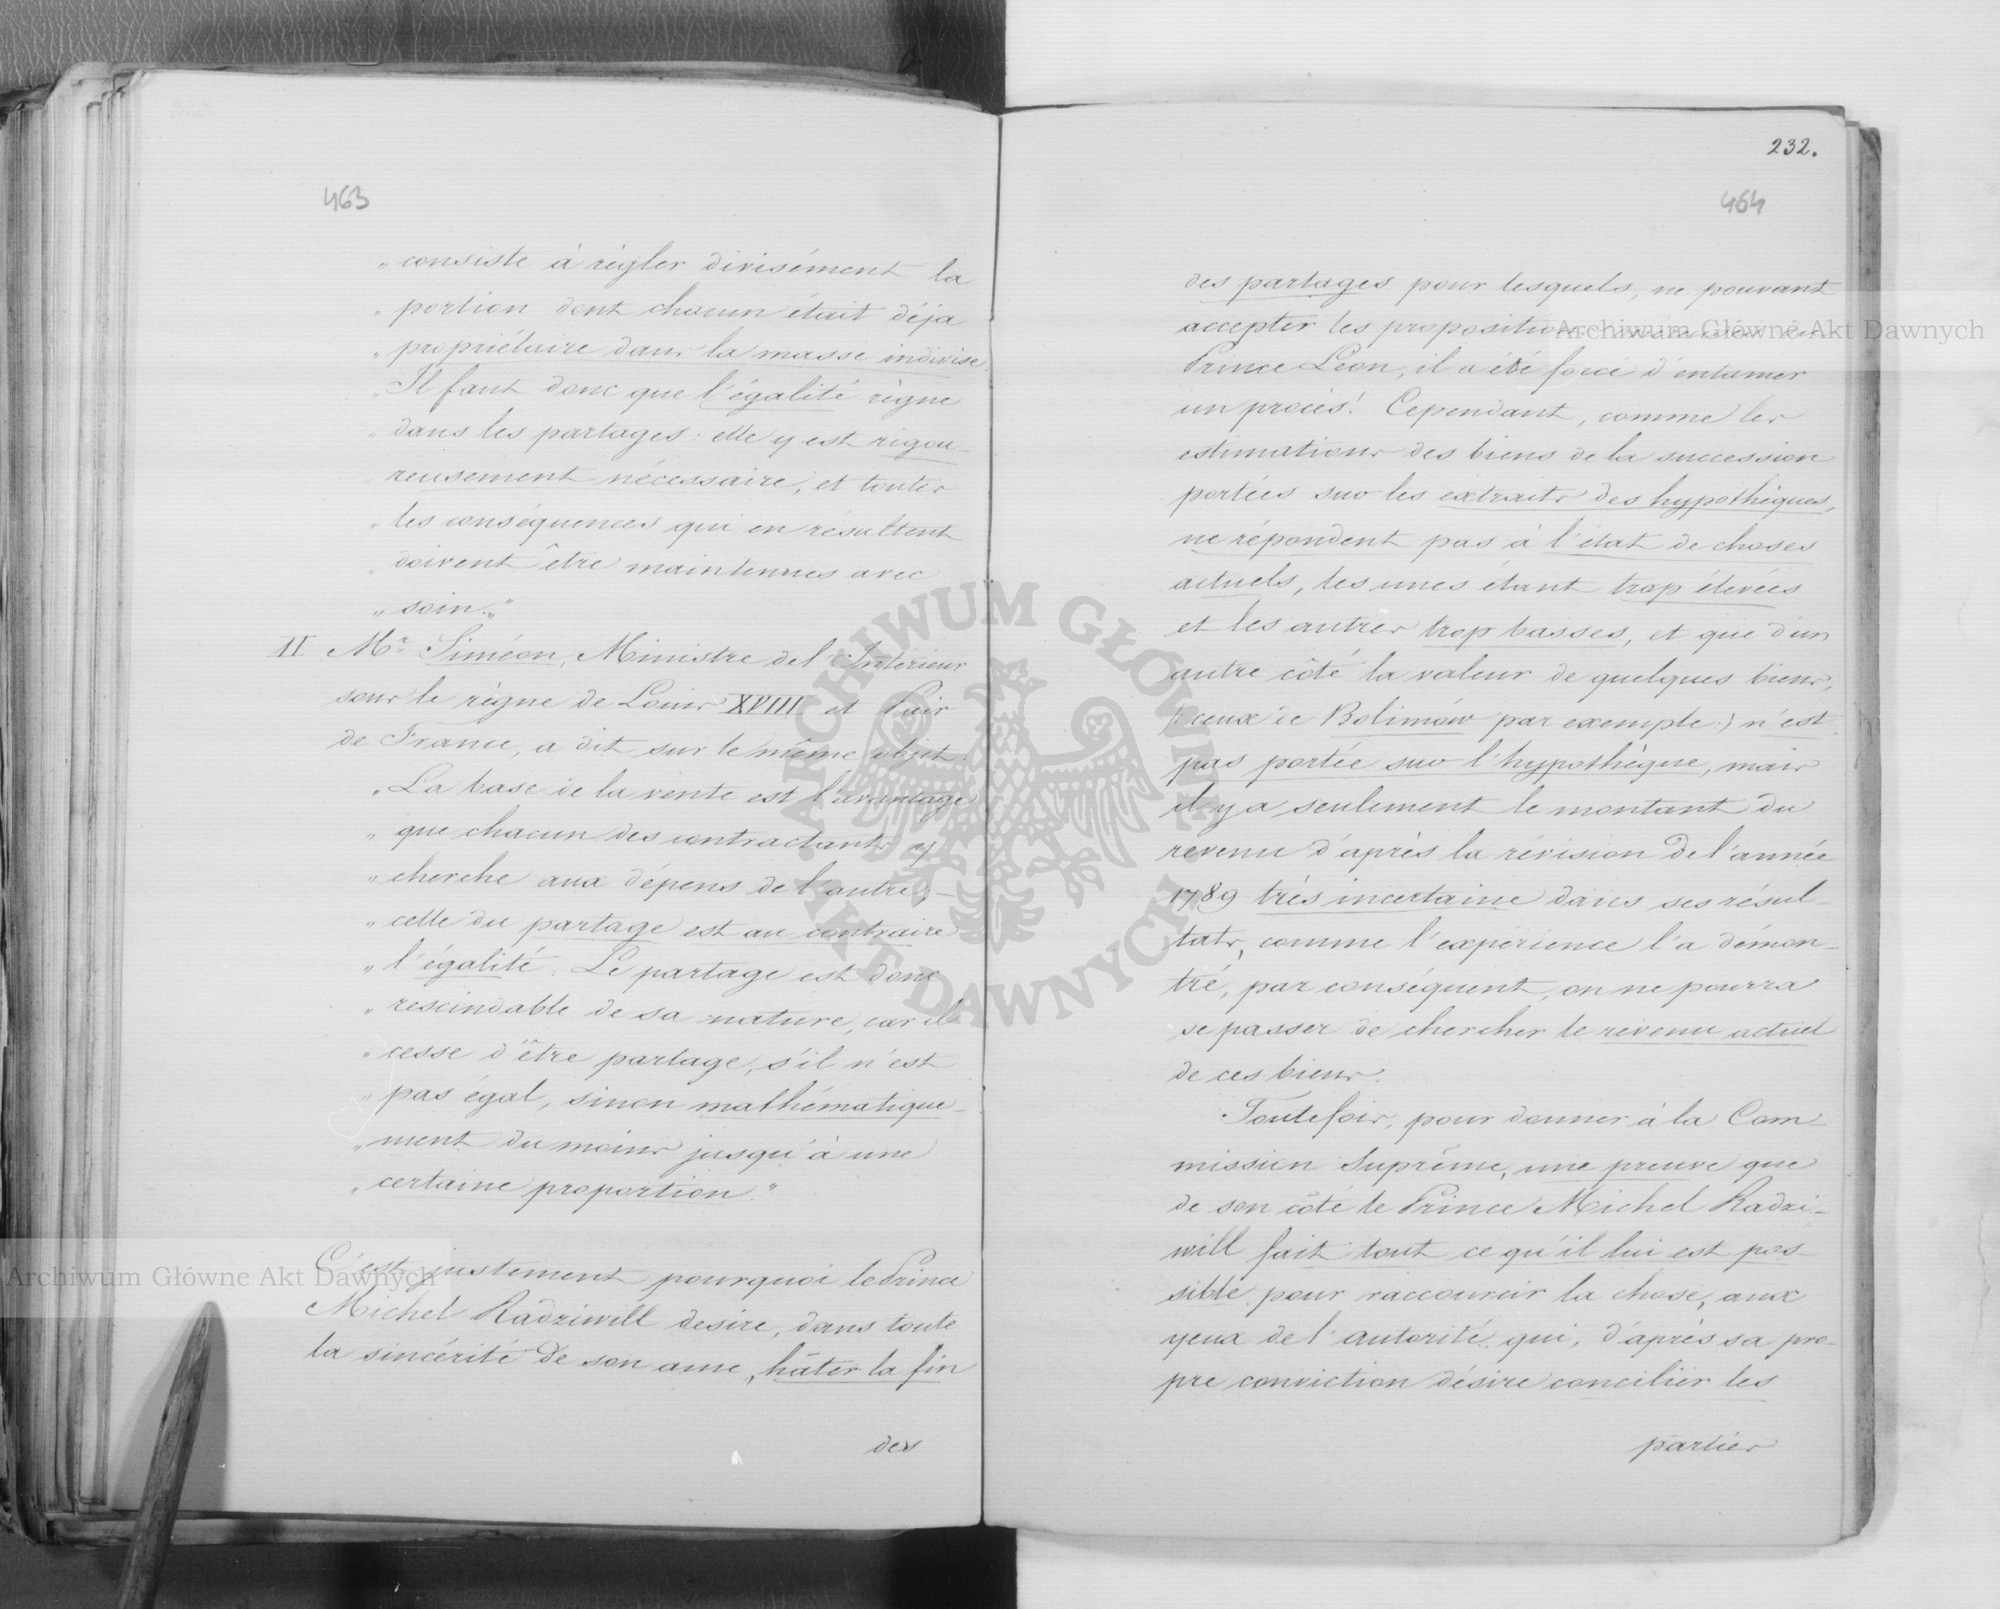 463
„ consiste à règler divisément la
„ portion dont chacun était déja
„ propriétaire dans la masse indivise.
„ Il faut donc que l'égalité règne
„ dans les partages: elle y est rigou-
„ reusement nécessaire, et toutes
„ les conséquences qui en résultent
„ doivent être maintenues avec
„ soin."
II Mr. Siméon, Ministre de l'Intérieur
sous le règne de Louis XVIII et Pair
de France, a dit sur le même objet:
„ La base de la vente est l'avantage
„ que chacun des contractants y
„ cherche aux dépens de l'autre; –
„ celle du partage est au contraire
„ l'égalité. Le partage est donc
„ rescindable de sa nature, car il
„ cesse d'être partage, s'il n'est
„ pas égal, sinon mathématique-
„ ment du moins jusqu'à une
„ certaine proportion."
C'est justement pourquoi le Prince
Michel Radziwill desire, dans toute
la sincérité de son ame, hâter la fin
des
232.
464
des partages pour lesquels, ne pouvant
accepter les propositions du
Prince Léon, il a été force d'entamer
un procès! Cependant, comme les
estimations des biens de la succession
portées sur les extraits des hypothèques,
ne répondent pas à l'état de choses
actuels, les unes étant trop élevées
et les autres trop basses, et que d'un
autre côté la valeur de quelques biens,
(: ceux de Bolimów par exemple:) n'est
pas portée sur l'hypothèque, mais
il y a seulement le montant du
revenu d'après la révision de l'année
1789 très incertaine dans ses résul-
tats, comme l'expérience l'a démon-
tré, par conséquent, on ne pourra
se passer de chercher le revenu actuel
de ces biens.
Toutefois, pour donner à la Com-
mission Suprême, une preuve que
de son côté le Prince Michel Radzi-
will fait tout ce qu'il lui est pos-
sible pour raccourcir la chose, aux
yeux de l'autorité qui, d'après sa pro-
pre conviction désire concilier les
parties
Archiwum Główne Akt Dawnych
Archiwum Główne Akt Dawnych
ARCHIWUM GŁÓWNE AKT DAWNYCH